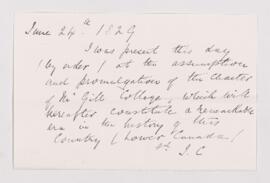 June 24th 1829
I was present this day
(by order) at the assumption
and promulgation of the Charter
of McGill College, which will
hereafter constitute a remarkable
era in the history of this
Country (Lower Canada)
J. C